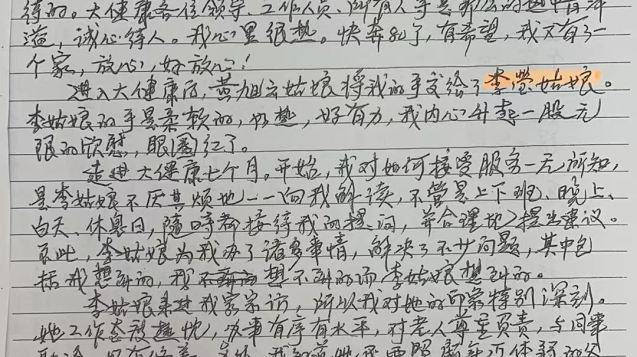 待的。大健康各位领导、工作人员、所有人等是那么的热情洋
溢，诚心待人。我心里很热。快奔80了，有希望，我又有了一
个家，放心，好放心！
进入大健康店，黄旭云姑娘将我的手交给了李莹姑娘。
李姑娘的手是柔软的，也热，好有力，我内心升起一股无
限的欣慰，眼圈红了。
走进大健康七个月。开始，我对如何接受服务一无所知，
是李姑娘不厌其烦地一一向我解读，不管是上下班、晚上、
白天、休息日，随时都接待我的提问，并合理地提出建议。
至此，李姑娘为我办了诸多事情，解决了不少问题，其中包
括我想到的，我不想到的而李姑娘想到的。
李姑娘来过我家家访，所以我对她的印象特别深刻。
她工作态度热忱，办事有序有水平，对老人尊重负责，与同事